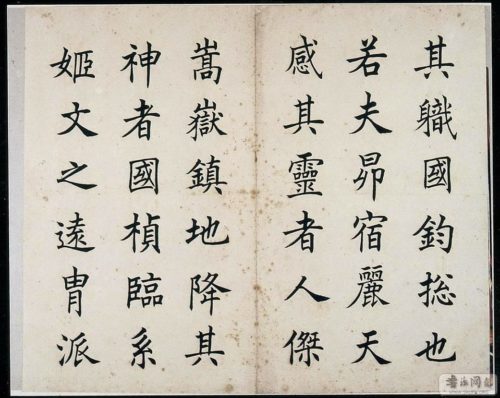 其軄國鈞捴也
若夫昴宿麗天
感其靈者人傑
嵩嶽鎮地降其
神者國楨臨系
姬文之遠胄派